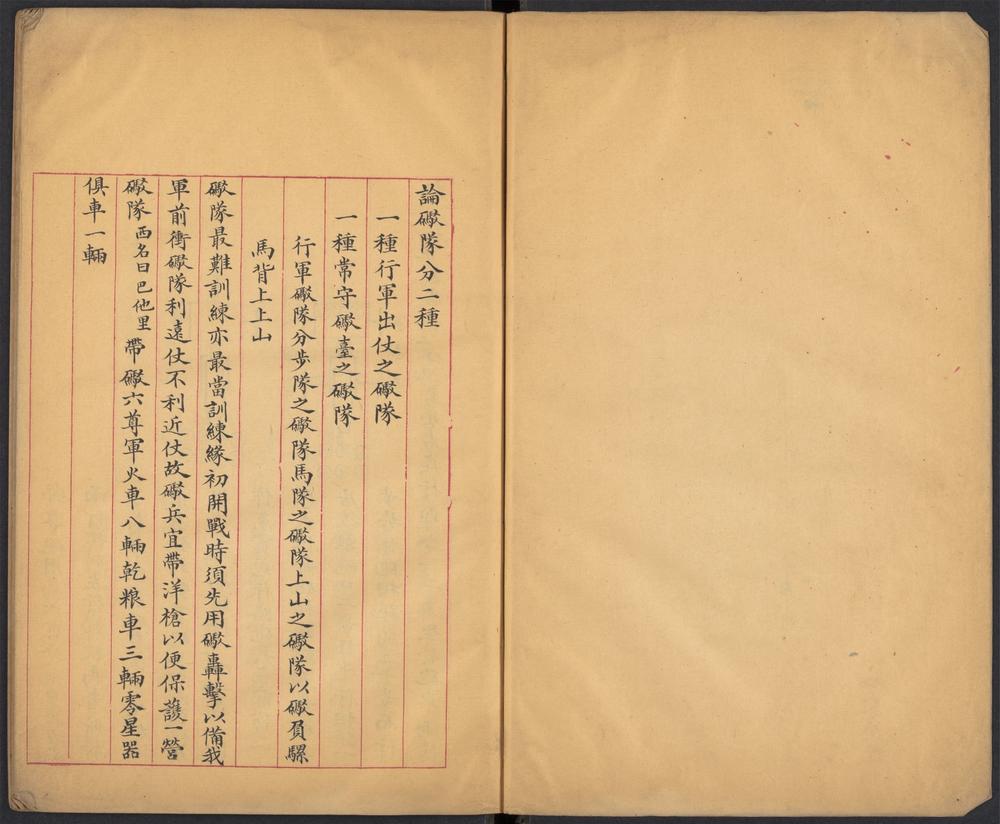 論礮隊分二種
一種行軍出仗之礮隊
一種常守礮臺之礮隊
行軍礮隊分步隊之礮隊馬隊之礮隊上山之礮隊以礮負騾
馬背上上山
礮隊最難訓練亦最當訓練緣初開戰時須先用礮轟擊以備我
軍前衝礮隊利遠仗不利近仗故礮兵宜帶洋槍以便保護一營
礮隊西名曰巴他里帶礮六尊軍火車八輛乾粮車三輛零星器
俱車一輛